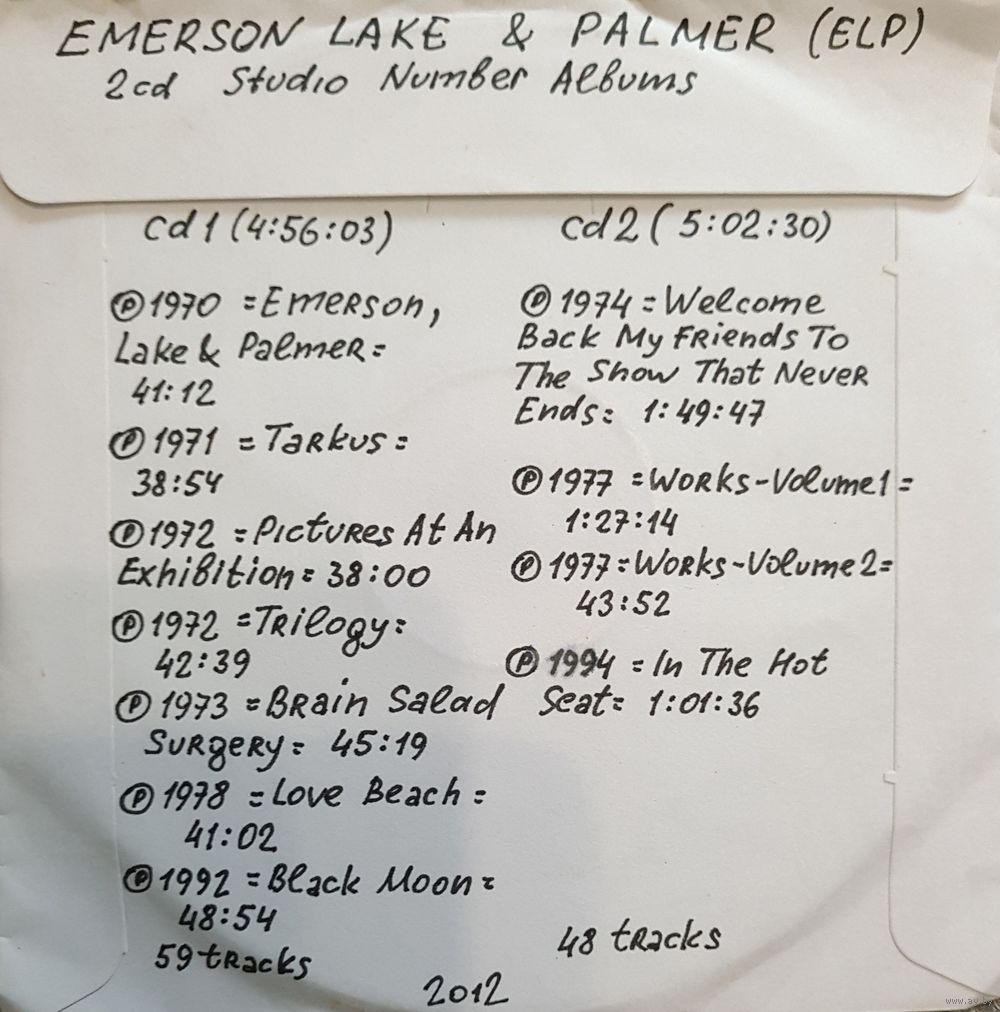 EMERSON LAKE & PALMER (ELP)
2cd Studio Number Albums
cd1 (4:56:03)
℗ 1970 = Emerson,
Lake & Palmer =
41:12
℗ 1971 = Tarkus =
38:54
℗ 1972 = Pictures At An
Exhibition = 38:00
℗ 1972 = Trilogy =
42:39
℗ 1973 = Brain Salad
Surgery = 45:19
℗ 1978 = Love Beach =
41:02
℗ 1992 = Black Moon =
48:54
59 tracks
cd2 (5:02:30)
℗ 1974 = Welcome
Back My Friends To
The Show That Never
Ends = 1:49:47
℗ 1977 = Works-Volume 1 =
1:27:14
℗ 1977 = Works-Volume 2 =
43:52
℗ 1994 = In The Hot
Seat = 1:01:36
48 tracks
2012